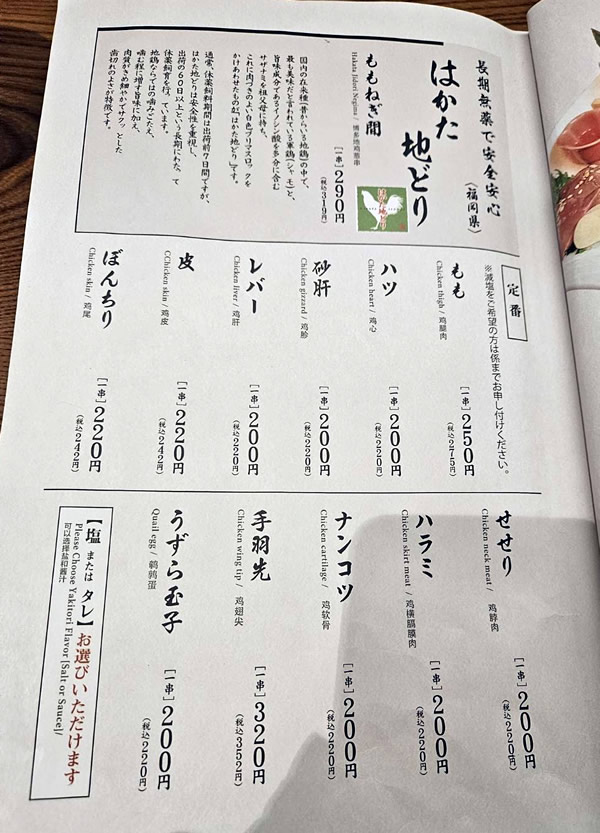 長期無薬で安全安心
(福岡県)
はかた
地どり
ももねぎ間
Hakata Jidori Negima / 博多地鸡葱串
[一串]290円
(税込319円)
はかた地どり
国内の在来種(昔からいる地鶏)の中で、
最も美味だと言われている軍鶏(シャモ)と、
旨味成分であるイノシン酸を多分に含む
サザナミを祖父母に持ち、
これに肉づきのよい白色プリマスロックを
かけあわせたもの≪はかた地どり≫です。
通常、休薬飼料期間は出荷前7日間ですが、
はかた地どりは安全性を重視し、
出荷の60日以上という長期にわたって
休薬飼育を行っています。
地鶏ならではの噛みごたえ、
噛む程に増す旨味に加え、
肉質がきめ細やかでサクッとした
歯切れのよさが特徴です。
定番
※減塩をご希望の方は係までお申し付けください。
もも
Chicken thigh / 鸡腿肉
[一串]250円
(税込275円)
ハツ
Chicken heart / 鸡心
[一串]200円
(税込220円)
砂肝
Chicken gizzard / 鸡胗
[一串]200円
(税込220円)
レバー
Chicken liver / 鸡肝
[一串]200円
(税込220円)
皮
CChicken skin / 鸡皮
[一串]220円
(税込242円)
ぼんちり
Chicken skin / 鸡尾
[一串]220円
(税込242円)
せせり
Chicken neck meat / 鸡脖肉
[一串]200円
(税込220円)
ハラミ
Chicken skirt meat / 鸡横膈膜肉
[一串]200円
(税込220円)
ナンコツ
Chicken cartilage / 鸡软骨
[一串]200円
(税込220円)
手羽先
Chicken wing tip / 鸡翅尖
[一串]320円
(税込352円)
うずら玉子
Quail egg / 鹌鹑蛋
[一串]200円
(税込220円)
【塩 または タレ】お選びいただけます
Please Choose Yakitori Flavor [Salt or Sauce]/
可以选择盐和酱汁